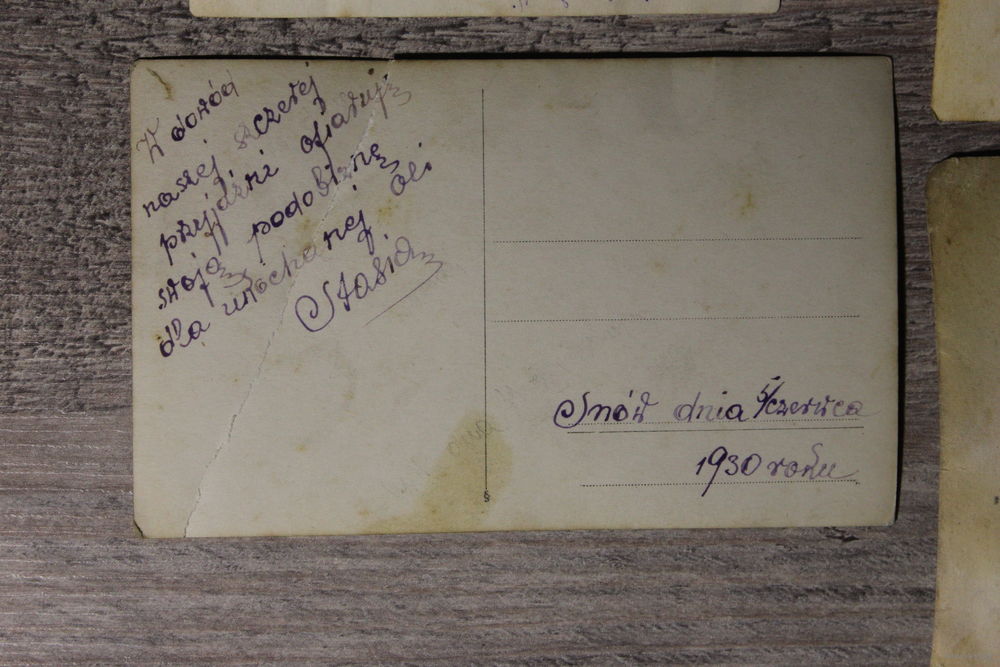 W dowód
naszej szczerej
przyjaźni ofiaruję
swoją podobiznę
dla ukochanej Oli
Stasia
Snów dnia 5/czerwca
1930 roku